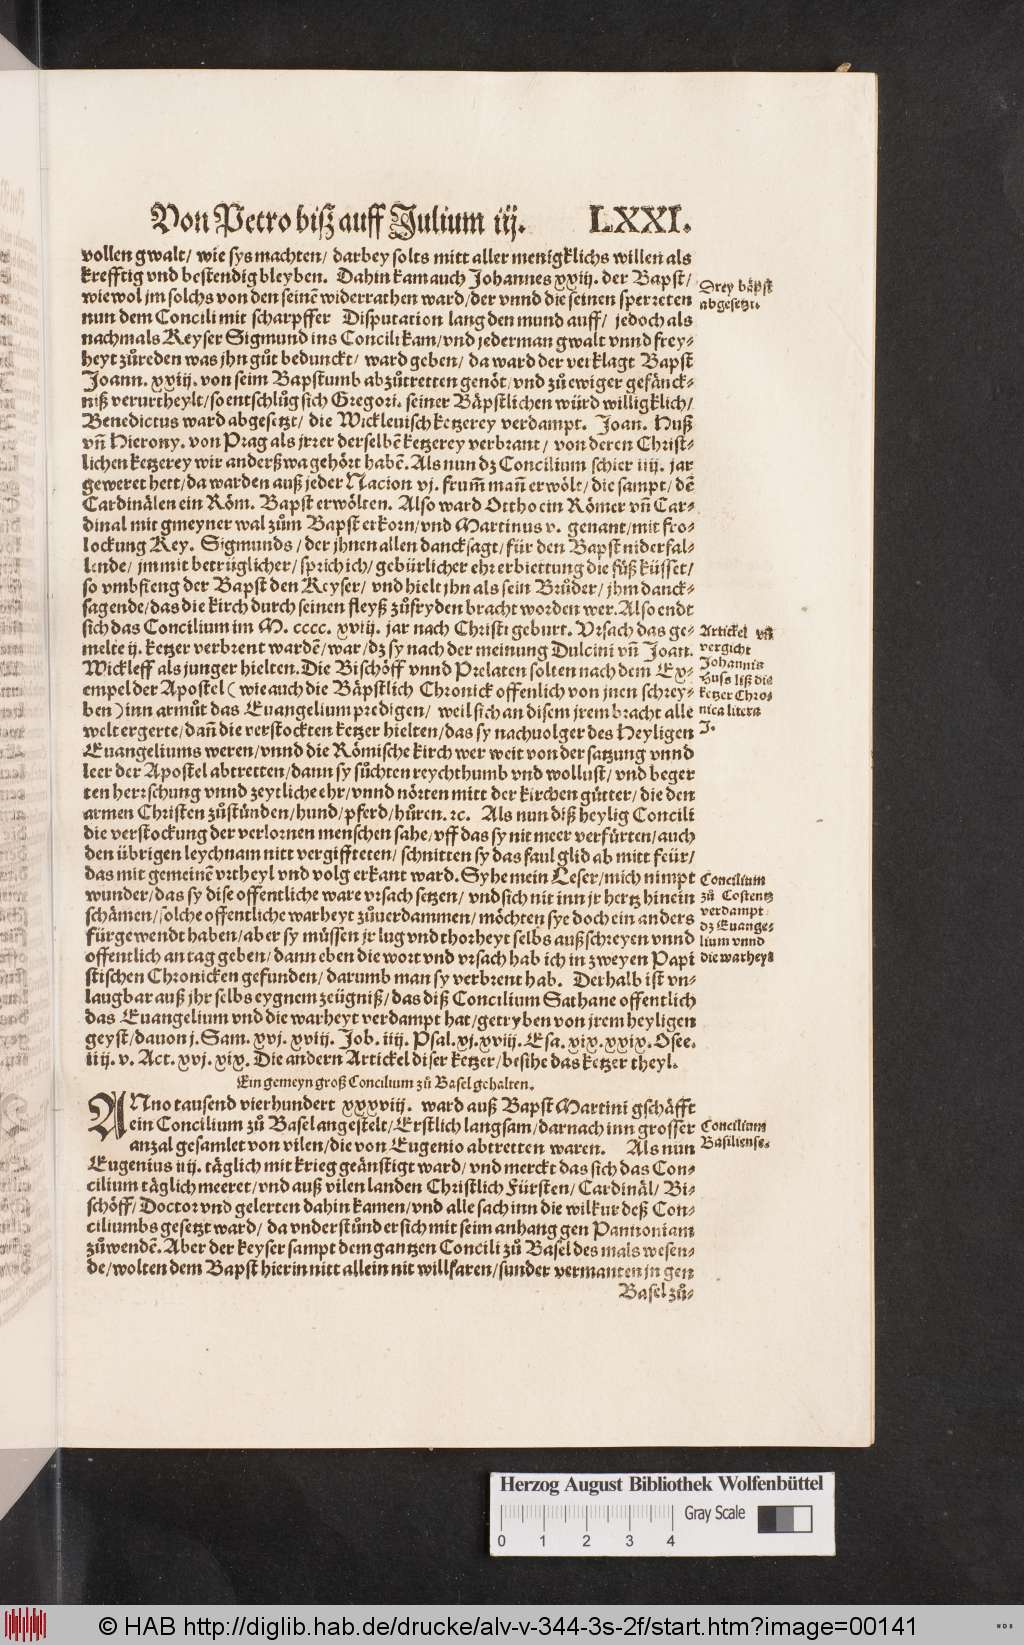 Von Petro biß auff Julium iij. LXXI.
vollen gwalt/ wie sys machten/ darbey solts mitt aller menigklichs willen als
krefftig vnd bestendig bleyben. Dahin kam auch Johannes xxiij. der Bapst/
wiewol jm solchs von den seinē widerrathen ward/ der vnnd die seinen sperreten
nun dem Concili mit scharpffer Disputation lang den mund auff/ jedoch als
nachmals Keyser Sigmund ins Concili kam/ vnd jederman gwalt vnnd frey-
heyt zůreden was jhn gůt bedunckt/ ward geben/ da ward der verklagt Bapst
Joann. xxiij. von seim Bapstumb abzůtretten genöt/ vnd zů ewiger gefänck-
niß verurtheylt/ so entschlůg sich Gregori. seiner Bäpstlichen würd willigklich/
Benedictus ward abgesetzt/ die Wickleuisch ketzerey verdampt. Joan. Huß
vñ Hierony. von Prag als jrrer derselbē ketzerey verbrant/ von deren Christ-
lichen ketzerey wir anderßwa gehört habē. Als nun dz Concilium schier iiij. jar
geweret hett/ da warden auß jeder Nacion vj. frum̄ man̄ erwölt/ die sampt/ dē
Cardinälen ein Röm. Bapst erwölten. Also ward Ottho ein Römer vñ Car-
dinal mit gmeyner wal zům Bapst erkorn/ vnd Martinus v. genant/ mit fro-
lockung Key. Sigmunds/ der jhnen allen dancksagt/ für den Bapst niderfal-
lende/ jm mit betrüglicher/ sprich ich/ gebürlicher ehrerbiettung die füß küsset/
so vmbfieng der Bapst den Keyser/ vnd hielt jhn als sein Brůder/ jhm danck-
sagende/ das die kirch durch seinen fleyß zůfryden bracht worden wer. Also endt
sich das Concilium im M. cccc. xviij. jar nach Christi geburt. Vrsach das ge-
melte ij. ketzer verbrent wardē/ war/ dz sy nach der meinung Dulcini vñ Joan.
Wickleff als junger hielten. Die Bischöff vnnd Prelaten solten nach dem Ex-
empel der Apostel (wie auch die Bäpstlich Chronick offenlich von jnen schrey-
ben) inn armůt das Euangelium predigen/ weil sich an disem jrem bracht alle
welt ergerte/ dañ die verstockten ketzer hielten/ das sy nachuolger des Heyligen
Euangeliums weren/ vnnd die Römische kirch wer weit von der satzung vnnd
leer der Apostel abtretten/ dann sy sůchten reychthumb vnd wollust/ vnd beger
ten herrschung vnnd zeytliche ehr/ vnnd nörten mitt der kirchen gütter/ die den
armen Christen zůstünden/ hund/ pferd/ hůren. ꝛc. Als nun diß heylig Concili
die verstockung der verlornen menschen sahe/ vff das sy nit meer verfürten/ auch
den übrigen leychnam nitt vergiffteten/ schnitten sy das faul glid ab mitt feür/
das mit gemeinē vrtheyl vnd volg erkant ward. Syhe mein Leser/ mich nimpt
wunder/ das sy dise offentliche ware vrsach setzen/ vnd sich nit inn jr hertz hinein
schämen/ solche offentliche warheyt zůuerdammen/ möchten sye doch ein anders
fürgewendt haben/ aber sy müssen jr lug vnd thorheyt selbs außschreyen vnnd
offentlich an tag geben/ dann eben die wort vnd vrsach hab ich in zweyen Papi
stischen Chronicken gefunden/ darumb man sy verbrent hab. Derhalb ist vn-
laugbar auß jhr selbs eygnem zeügniß/ das diß Concilium Sathane offentlich
das Euangelium vnd die warheyt verdampt hat/ getryben von jrem heyligen
geyst/ dauon j. Sam. xvj. xviij. Job. iiij. Psal. xj. xviij. Esa. xix. xxix. Osee.
iiij. v. Act. xvj. xix. Die andern Artickel diser ketzer/ besihe das ketzer theyl.
Ein gemeyn groß Concilium zů Basel gehalten.
ANno tausend vierhundert xxxviij. ward auß Bapst Martini gschäfft
ein Concilium zů Basel angestelt/ Erstlich langsam/ darnach inn grosser
anzal gesamlet von vilen/ die von Eugenio abtretten waren. Als nun
Eugenius iiij. täglich mit krieg geänstigt ward/ vnd merckt das sich das Con-
cilium täglich meeret/ vnd auß vilen landen Christlich Fürsten/ Cardinäl/ Bi-
schöff/ Doctor vnd gelerten dahin kamen/ vnd alle sach inn die wilkur deß Con-
ciliumbs gesetzt ward/ da vnderstůnd er sich mit seim anhang gen Pannoniam
zůwendē. Aber der keyser sampt dem gantzen Concili zů Basel des mals wesen-
de/ wolten dem Bapst hierin nitt allein nit willfaren/ sunder vermanten jn gen
Basel zů-
Drey bäpst
abgesetzt.
Artickel vñ
vergicht
Johannis
Huss liß die
ketzer Chro-
nica litera
J.
Concilium
zů Costentz
verdampt
dz Euange-
lium vnnd
die warheyt
Concilium
Basiliense.
Herzog August Bibliothek Wolfenbüttel
Gray Scale
0 1 2 3 4
© HAB http://diglib.hab.de/drucke/alv-v-344-3s-2f/start.htm?image=00141